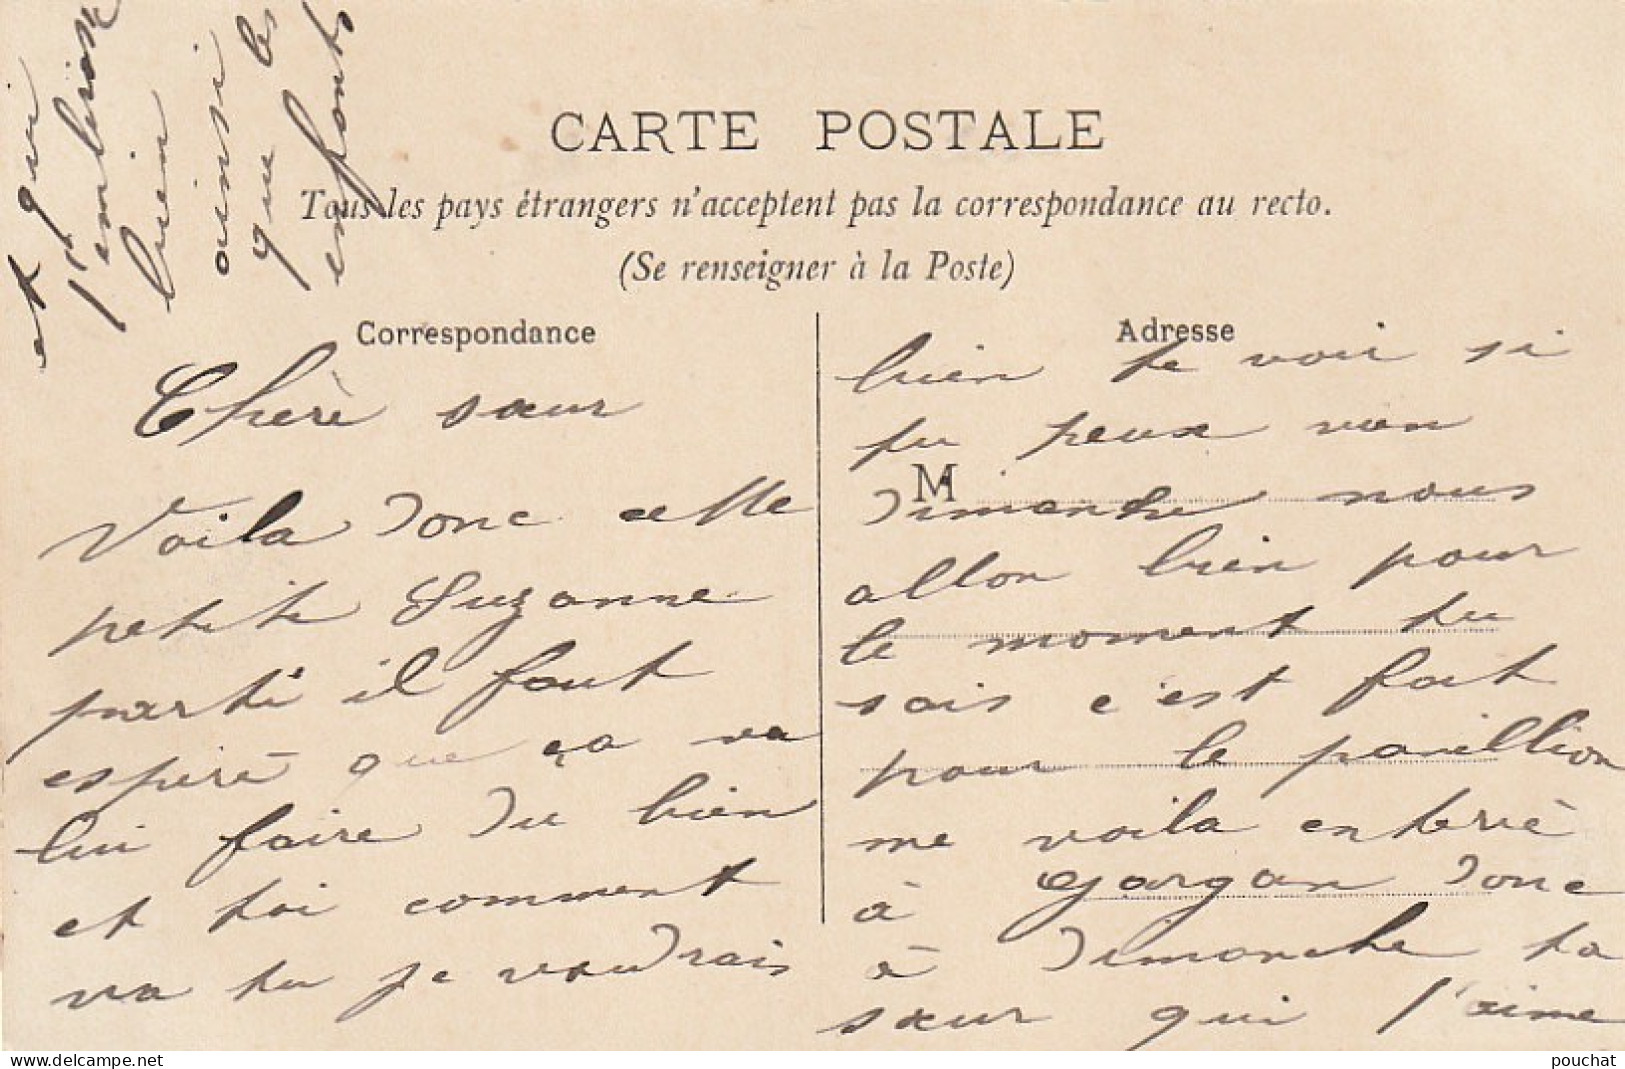 CARTE POSTALE
Tous les pays étrangers n'acceptent pas la correspondance au recto.
(Se renseigner à la Poste)
Correspondance
Chère sœur
Voila donc cette
petite Suzanne
parti il faut
esperé que ça va
lui faire du bien
et toi comment
va tu je voudrais
Adresse
M
bien te voir si
tu peux vien
dimanche nous
allon bien pour
le moment tu
sais c'est fait
pour le pavillion
me voila enterré
à Gargan donc
à dimanche ta
sœur qui t'aime
et qui
t'embrasse
bien
ainsi
que les
enfants
delcampe.net
pouchat